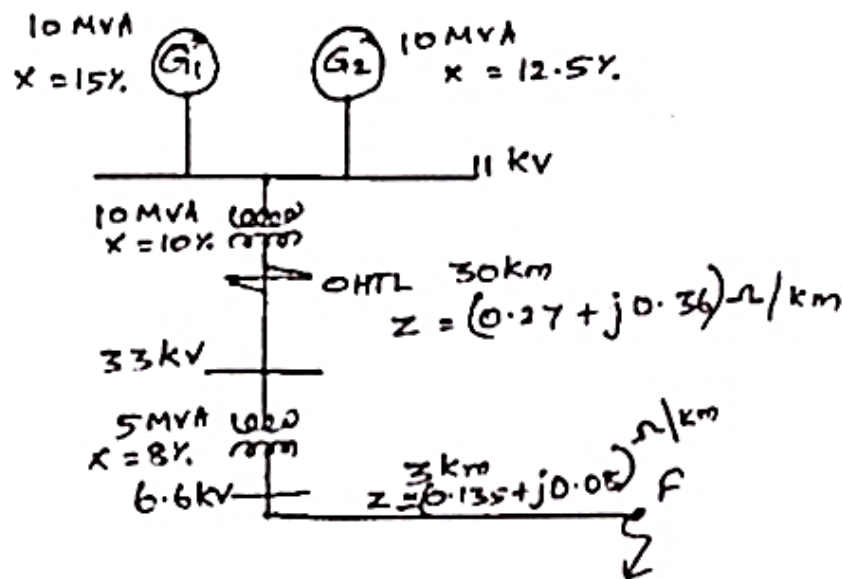 10 MVA
X = 15%.
G1
G2
10 MVA
X = 12.5%.
11 KV
10 MVA
X = 10%.
OHTL 30 km
Z = (0.27 + j 0.36) Ω / km
33 kV
5 MVA
X = 8%.
6.6 kV
3 km
Z = (0.135 + j 0.08) Ω / km
F